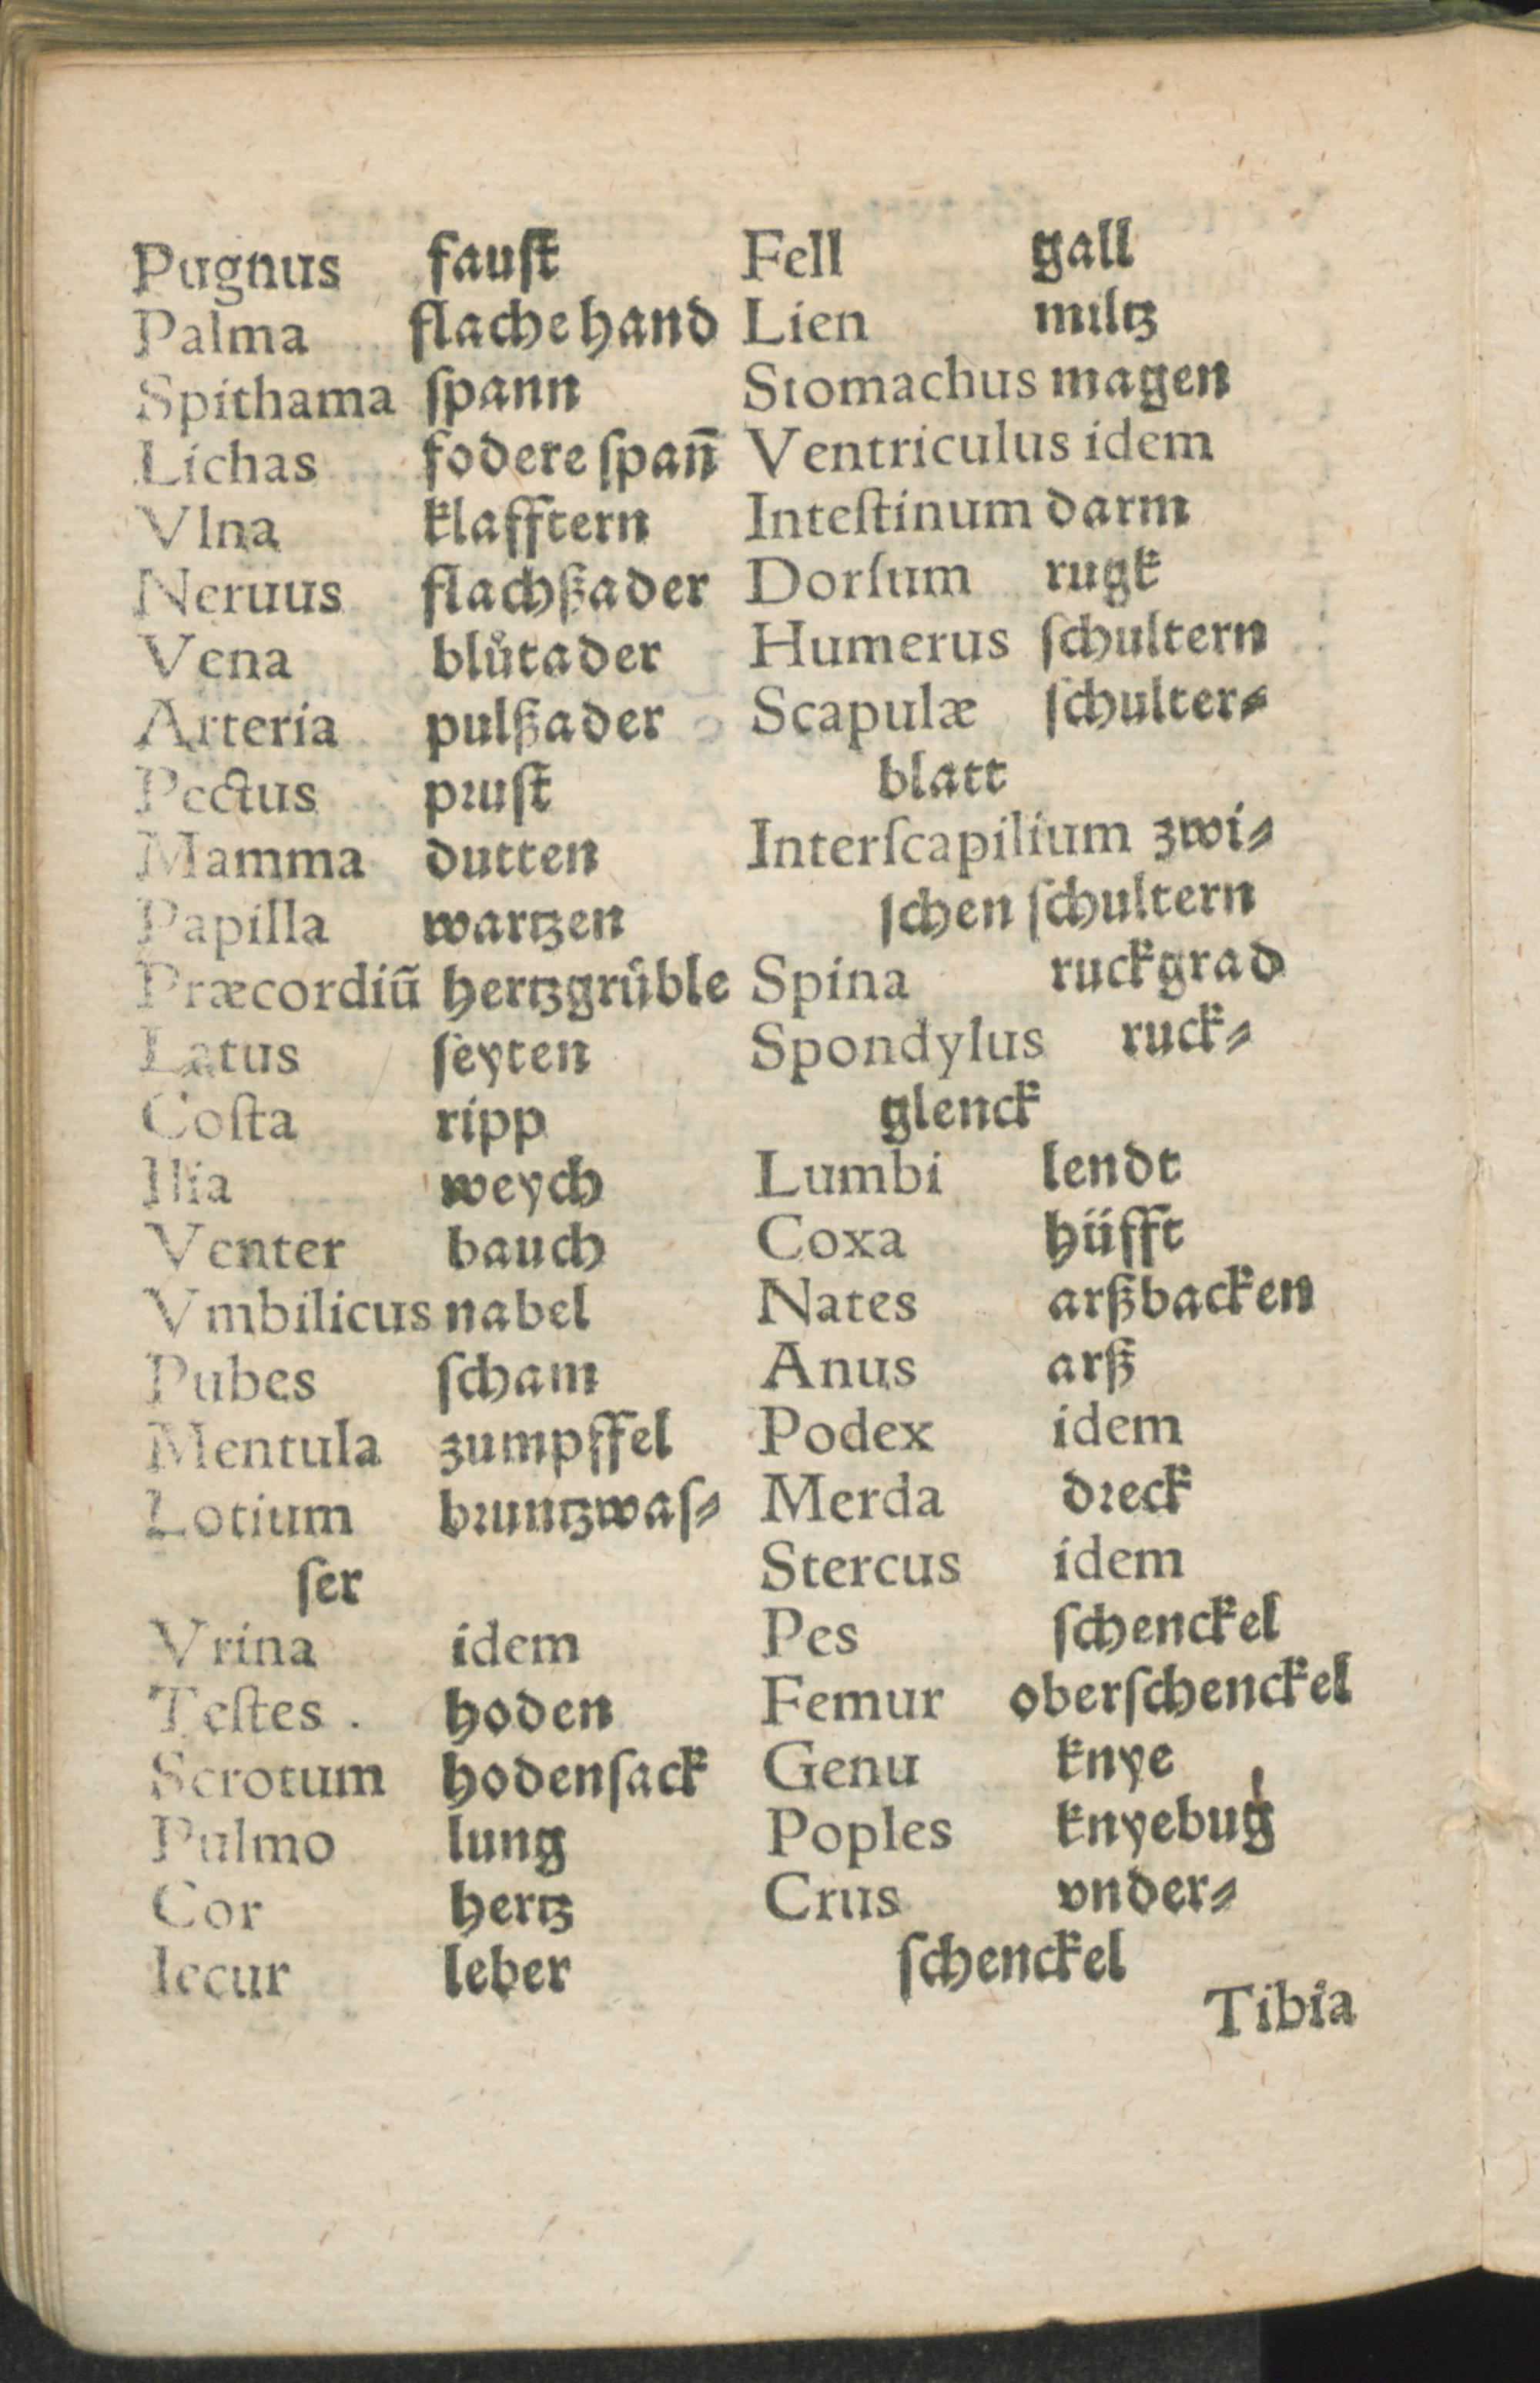 Pugnus fauſt
Palma flache hand
Spithama ſpann
Lichas fodere ſpan̄
Vlna klafftern
Neruus flachßader
Vena blůtader
Arteria pulßader
Pectus pꝛuſt
Mamma dutten
Papilla wartzen
Præcordiū hertzgrüble
Latus ſeyten
Coſta ripp
Ilia weych
Venter bauch
Vmbilicus nabel
Pubes ſcham
Mentula zumpffel
Lotium bꝛuntzwaſ⸗
ſer
Vrina idem
Teſtes . hoden
Scrotum hodenſack
Pulmo lung
Cor hertz
Iecur leber
Fell gall
Lien miltz
Stomachus magen
Ventriculus idem
Inteſtinum darm
Dorſum rugk
Humerus ſchultern
Scapulæ ſchulter⸗
blatt
Interſcapilium zwi⸗
ſchen ſchultern
Spina ruckgrad
Spondylus ruck⸗
glenck
Lumbi lendt
Coxa hüfft
Nates arßbacken
Anus arß
Podex idem
Merda dꝛeck
Stercus idem
Pes ſchenckel
Femur oberſchenckel
Genu knye
Poples knyebug
Crus vnder⸗
ſchenckel
Tibia